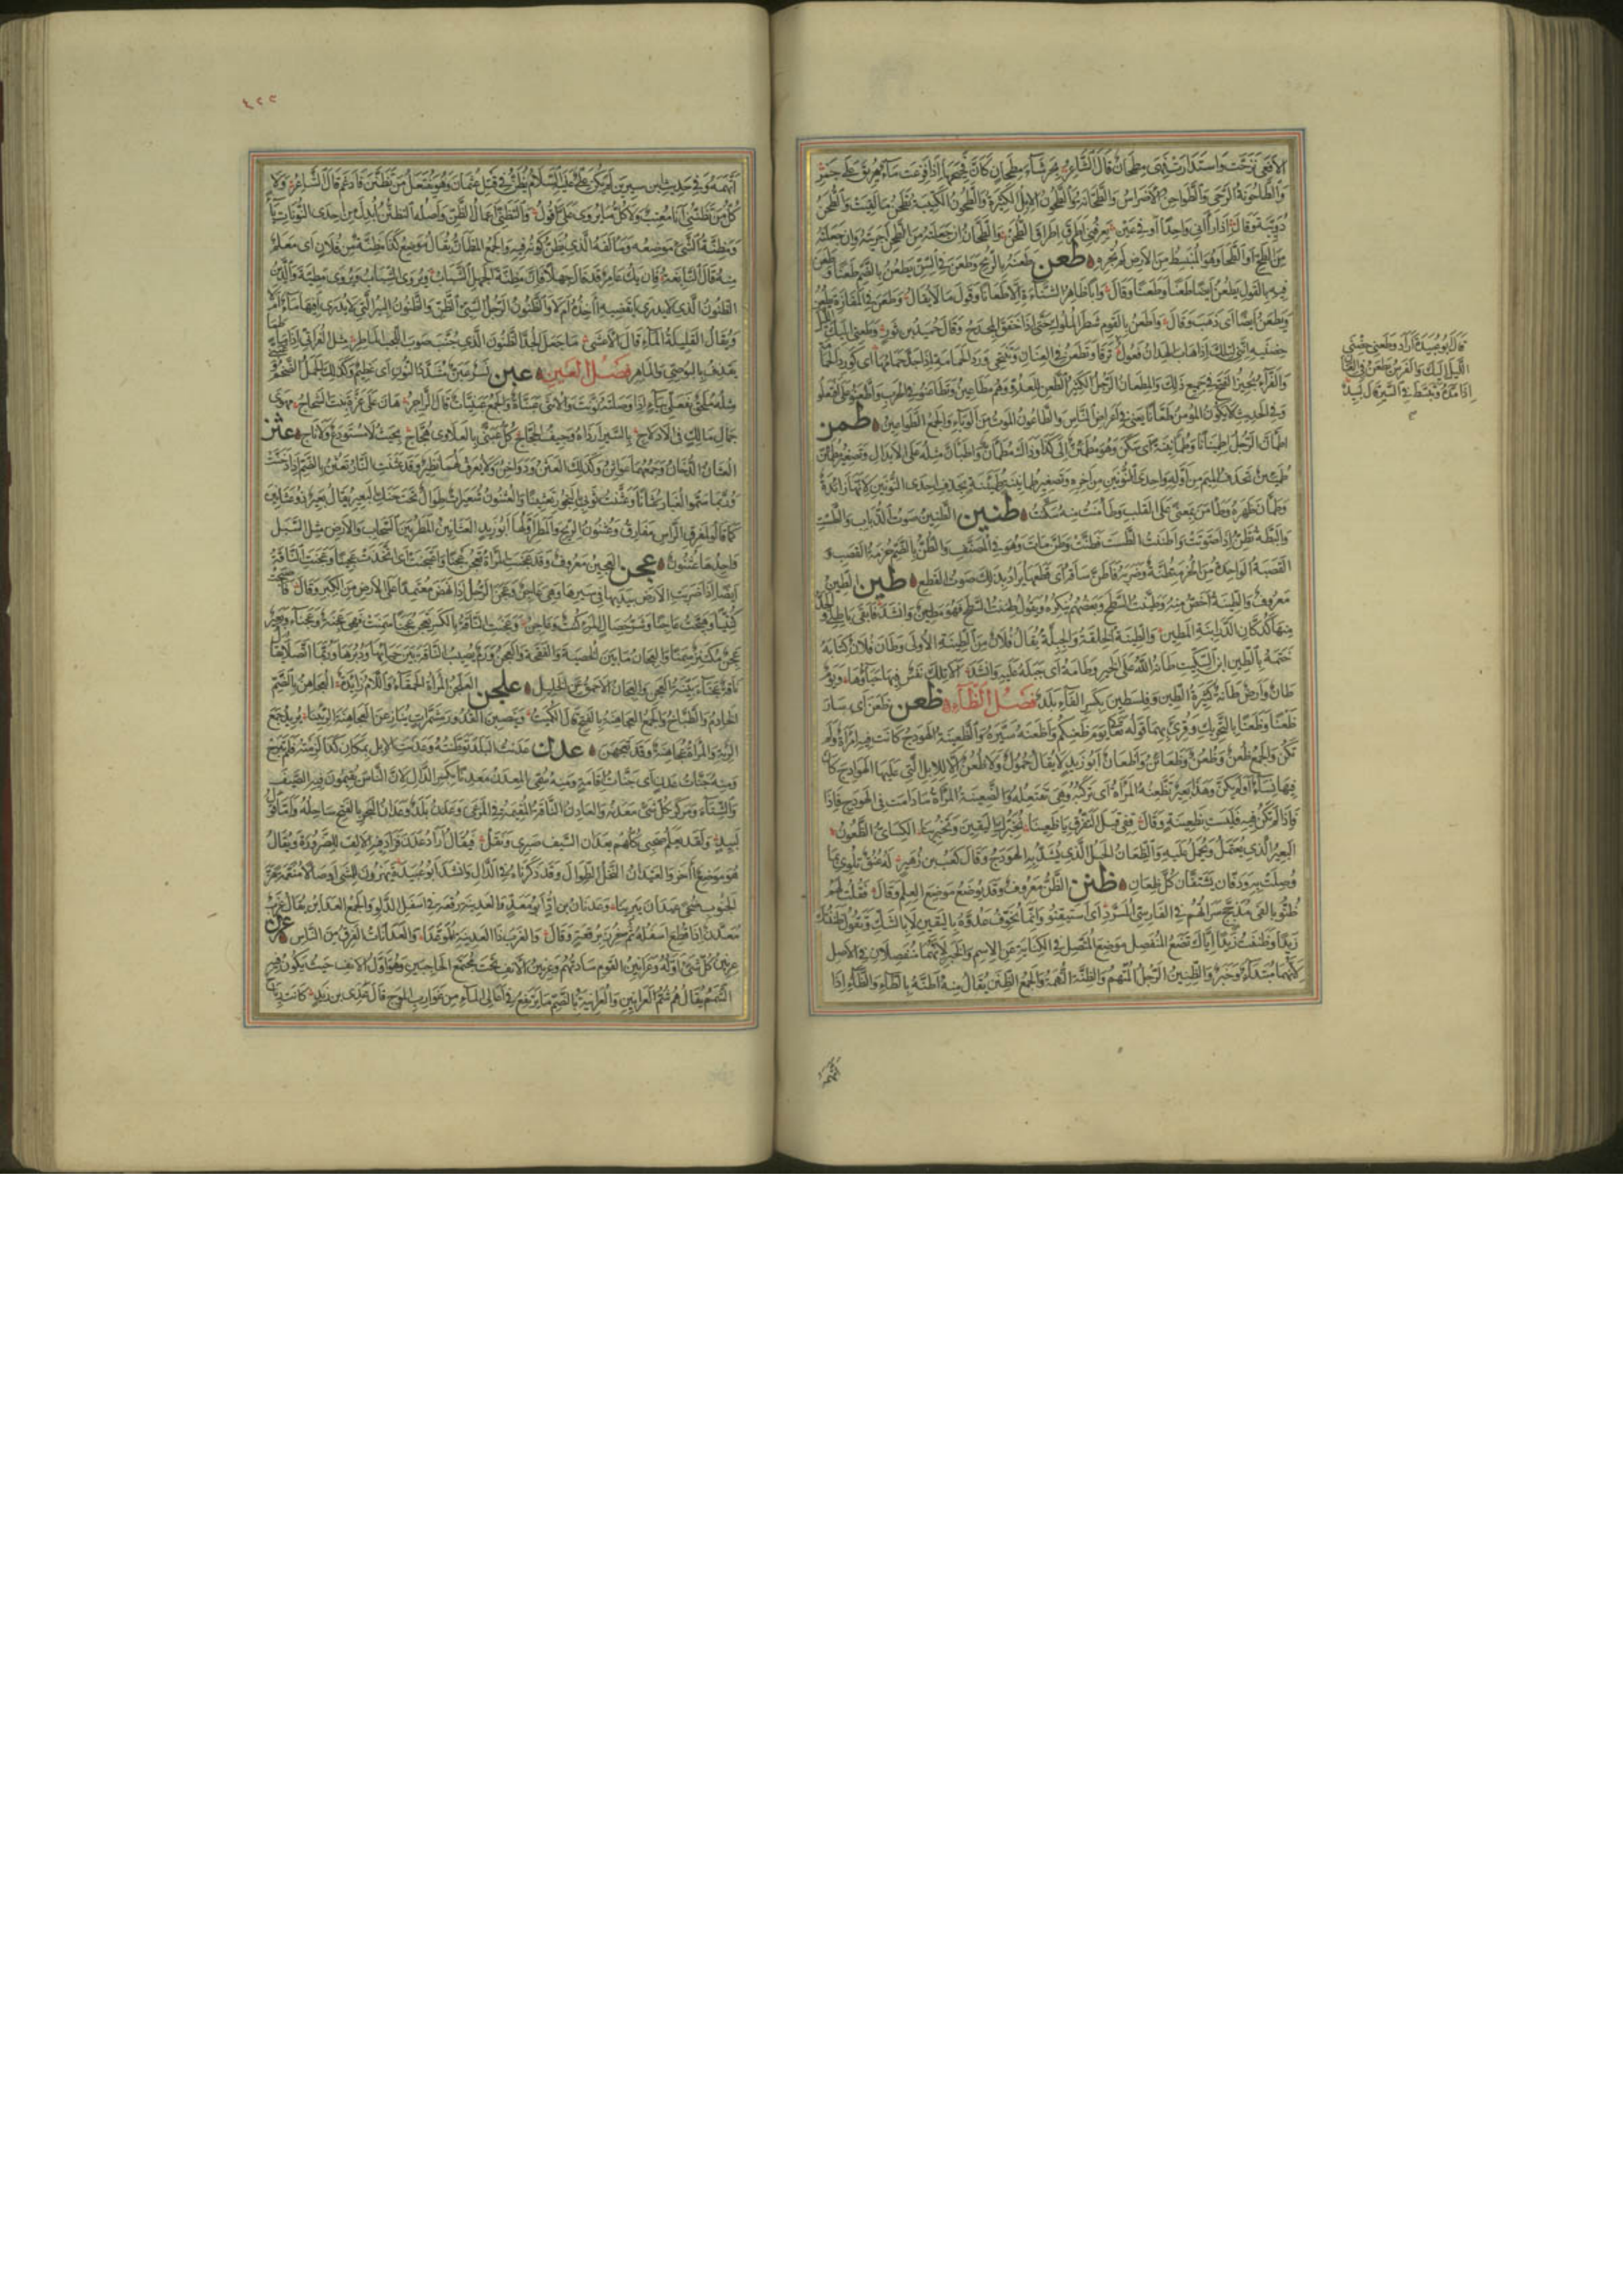 الأفعى ترحّت واستدارت فهي مطحان قال الشاعر بخرشاء مطحان كأن فحيحها إذا فزعت ماء هريق على جمر
والطاحونة الرحى والطواحن الأضراس والطحانة والطحون الإبل الكثيرة والطحون الكتيبة تطحن ما لقيت والطحن
دويبة وقال إذا رآني واحدا أو في عين يعرفني أطرق إطراق الطحن والطحان إن جعلته من الطحن أجريته وإن جعلته
من الطح أو الطحا وهو المنبسط من الأرض لم تجره طعن طعنه بالرمح وطعن في السن يطعن بالضم طعنا وطعن
فيه بالقول يطعن أيضا طعنا وطعنا وقال وأبى ظاهر الشناءة إلا طعنانا وقول ما لا يقال وطعن في المفازة يطعن
ويطعن أيضا أي ذهب وقال وأطعن بالقوم شطر الملوك حتى إذا خفق المجدح وقال حميد بن ثور وطعني إليك الليل
حضنيه إنني لتلك إذا هاب الهدان فعول ترقى وتطعن في العنان وتنتحي ورد الحمامة إذ أجد حمامها أي كورد الحمامة
والفراء يجيز الفتح في جميع ذلك والمطعان الرجل الكثير الطعن للعدو وهم مطاعين وتطاعنوا في الحرب واطعنوا على افتعلوا
وفي الحديث لا يكون المؤمن طعانا يعني في أعراض الناس والطاعون الموت من الوباء والجمع الطواعين طمن
اطمأن الرجل اطمئنانا وطمأنينة أي سكن وهو مطمئن إلى كذا وذاك مطمأن واطبأن مثله على الإبدال وتصغير مطمئن
طميئن تحذف الميم من أوله وإحدى النونين من آخره وتصغير طمأنينة طميئنة بحذف إحدى النونين لأنها زائدة
وطمأن ظهره وطأمن بمعنى على القلب وطأمنت منه سكنت طنين الطنين صوت الذباب والطست
والبطة تطن إذا صوتت وأطننت الطست فطنت وطن مات وهو في المصنف والطن بالضم حزمة القصب و
القصبة الواحدة من الحزمة طنة وضربه فأطن ساقه أي قطعها يراد بذلك صوت القطع طين الطين
معروف والطينة أخص منه وطينت السطح وبعضهم ينكره ويقول طنت السطح فهو مطين وأنشد فأبقى باطلي والجد
منها كدكان الدرابنة المطين والطينة الخلقة والجبلة يقال فلان من الطينة الأولى وطان فلان كتابه
ختمه بالطين ابن السكيت طانه الله على الخير وطامه أي جبله عليه وأنشد ألا تلك نفس طين فيها حياؤها ويوم
طان وأرض طانة كثيرة الطين وفلسطين بكسر الفاء بلد فصل الظاء ظعن ظعن أي سار
ظعنا وظعنا بالتحريك وقرئ بهما قوله تعالى يوم ظعنكم وأظعنه سيره والظعينة الهودج كانت فيه امرأة أو لم
تكن والجمع ظعن وظعن وظعائن وأظعان أبو زيد لا يقال حمول ولا ظعن إلا للإبل التي عليها الهوادج كان
فيها نساء أو لم يكن وهذا بعير تظعنه المرأة أي تركبه وهي تفتعله والظعينة المرأة ما دامت في الهودج فإذا
لم تكن فيه فليست بظعينة وقال قفي قبل التفرق يا ظعينا نخبرك اليقين وتخبرينا الكسائي الظعون
البعير الذي يعتمل ويحمل عليه والظعان الحبل الذي يشد به الهودج وقال كعب بن زهير له عنق تلوي بما
وصلت به ودفان يشتفان كل ظعان ظنن الظن معروف وقد يوضع موضع العلم وقال فقلت لهم
ظنوا بألفي مدجج سراتهم في الفارسي المسرد أي استيقنوا وإنما يخوف عدوه باليقين لا بالشك وتقول ظننتك
زيدا وظننت زيدا إياك تضع المنفصل موضع المتصل في الكناية عن الاسم والخبر لأنهما منفصلان في الأصل
لأنهما مبتدأ وخبر والظنين الرجل المتهم والظنة التهمة والجمع الظنن يقال منه أظنه بالطاء والظاء إذا
اتهمه
قال أبو عبيدة أراد وطعني حضني
الليل إليك والفرس يطعن في العنان
إذا مده وتبسط في السير قال لبيد
٤٢٢
اتهمه وفي حديث ابن سيرين لم يكن علي عليه السلام يظن في قتل عثمان وهو يفتعل من تظنن فأدغم قال الشاعر ولا
كل من تظنني أنا معتب ولا كل ما يروى علي أقول والتظني إعمال الظن وأصله التظنن أبدل من إحدى النونات ياء
ومظنة الشيء موضعه ومألفه الذي يظن كونه فيه والجمع المظان يقال موضع كذا مظنة من فلان أي معلم
منه قال النابغة فإن يك عامر قد قال جهلا فإن مظنة الجهل الشباب ويروى السباب ويروى مطية والدين
الظنون الذي لا يدري أيقضيه آخذه أم لا والظنون الرجل السيئ الظن والظنون البئر التي لا يدرى أفيها ماء أم لا
ويقال القليلة الماء قال الأعشى ما جعل الجد الظنون الذي جنب صوب اللجب الماطر مثل الفراتي إذا ما طما
يقذف بالبوصي والماهر فصل العين عبن نسر عبن مشددة النون أي عظيم وكذلك الجمل الضخم
مثله ملحق بفعلى بياء إذا وصلته نونت والأنثى عبناة والجمع عبنيات قال الراجز هان على عزة بنت الشحاج مهوى
جمال مالك في الإدلاج بالسير أرداه وجيف الحجاج كل عبنى بالعلاوى هجاج بحيث لا مستودع ولا ناج عثن
العثان الدخان وجمعهما عواثن ودواخن وكذلك العثن ولا يعرف لهما نظير وقد عثنت النار تعثن بالضم إذا دخنت
وربما سموا الغبار عثانا وعثنت ثوبي بالبخور تعثينا والعثنون شعيرات طوال تحت حنك البعير يقال بعير ذو عثانين
كما قالوا لمفرق الرأس مفارق وعثنون الريح والمطر أولهما أبو زيد العثانين المطر بين السحاب والأرض مثل السبل
واحدها عثنون عجن العجين معروف وقد عجنت المرأة تعجن عجنا واعتجنت أي اتخذت عجينا وعجنت الناقة
أيضا إذا ضربت الأرض بيديها في سيرها وهي عاجن وعجن الرجل إذا نهض معتمدا على الأرض من الكبر وقال فأصبحت
كنتيا وهيجت عاجنا وشر خصال المرء كنت وعاجن وعجنت الناقة بالكسر تعجن عجنا سمنت فهي عجنة وعجناء وبعير
عجن مكتنز سمنا والعجان ما بين الخصية والفقحة والعجن ورم يصيب الناقة بين حيائها ودبرها وربما اتصلا يقال
ناقة عجناء بينة العجن والعجان الأحمق عن الخليل علجن العلجن المرأة الحمقاء واللام زائدة العجاهن بالضم
الخادم والطباخ والجمع العجاهنة بالفتح قال الكميت وينصبن القدور مشمرات ينازعن العجاهنة الرئينا يريد جمع
الرئة والمرأة عجاهنة وقد تعجهن عدن عدنت البلد توطنته وعدنت الإبل بمكان كذا لزمته فلم تبرح
ومنه جنات عدن أي جنات إقامة ومنه سمي المعدن معدنا بكسر الدال لأن الناس يقيمون فيه الصيف
والشتاء ومركز كل شيء معدنه والعادن الناقة المقيمة في المرعى وعدن بلد وعدان البحر بالفتح ساحله وأما قول
لبيد ولقد يعلم صحبي كلهم بعدان السيف صبري ونقل فيقال أراد عدن فزاد فيه الألف للضرورة ويقال
هو موضع آخر والعيدان النخل الطوال وقد ذكرناه في الدال
لجنوب
معدن إذا قطع أسفله ثم خرز برقعة وقال والغرب ذا العدينة الموعبا والعدانات الفرق من الناس عرن
عرنين كل شيء أوله وعرانين القوم سادتهم وعرنين الأنف تحت مجتمع الحاجبين وهو أول الأنف حيث يكون فيه
الشمم يقال هم شم العرانين والعرانية بالضم ما يرتفع في أعالي الماء من غوارب الموج قال عدي بن زيد كانت